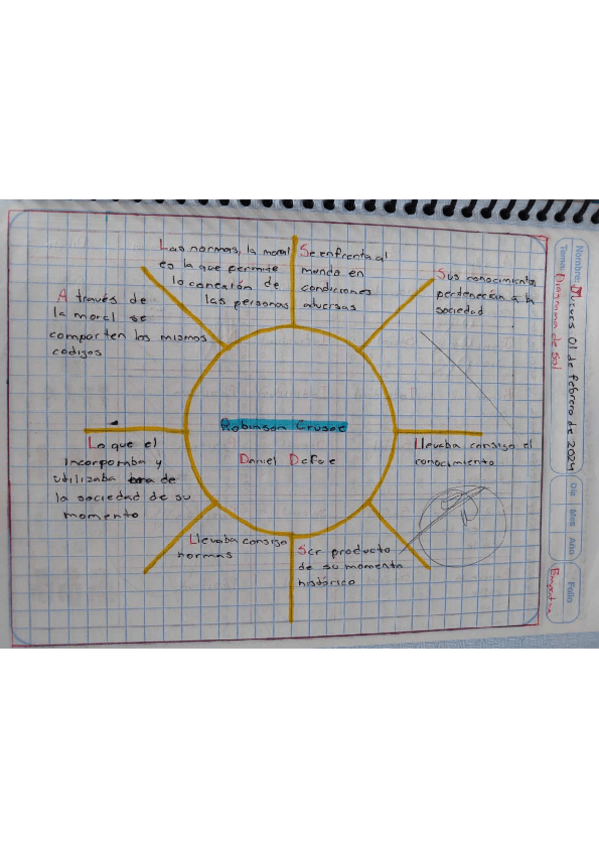 Nombre: Jueves 01 de febrero de 2024
Tema: Diagrama de sol
Día Mes Año
Folio
Las normas, la moral
es la que permite
la conexión de
las personas
Se enfrenta al
mundo en
condiciones
adversas
Sus conocimientos
pertenecian a la
sociedad
A través de
la moral se
comparten los mismos
codigos
Robinson Crusoe
Daniel Defoe
Llevaba consigo el
conocimiento
Lo que el
incorporaba y
utilizaba era de
la sociedad de su
momento
Llevaba consigo
normas
Ser producto
de su momento
histórico